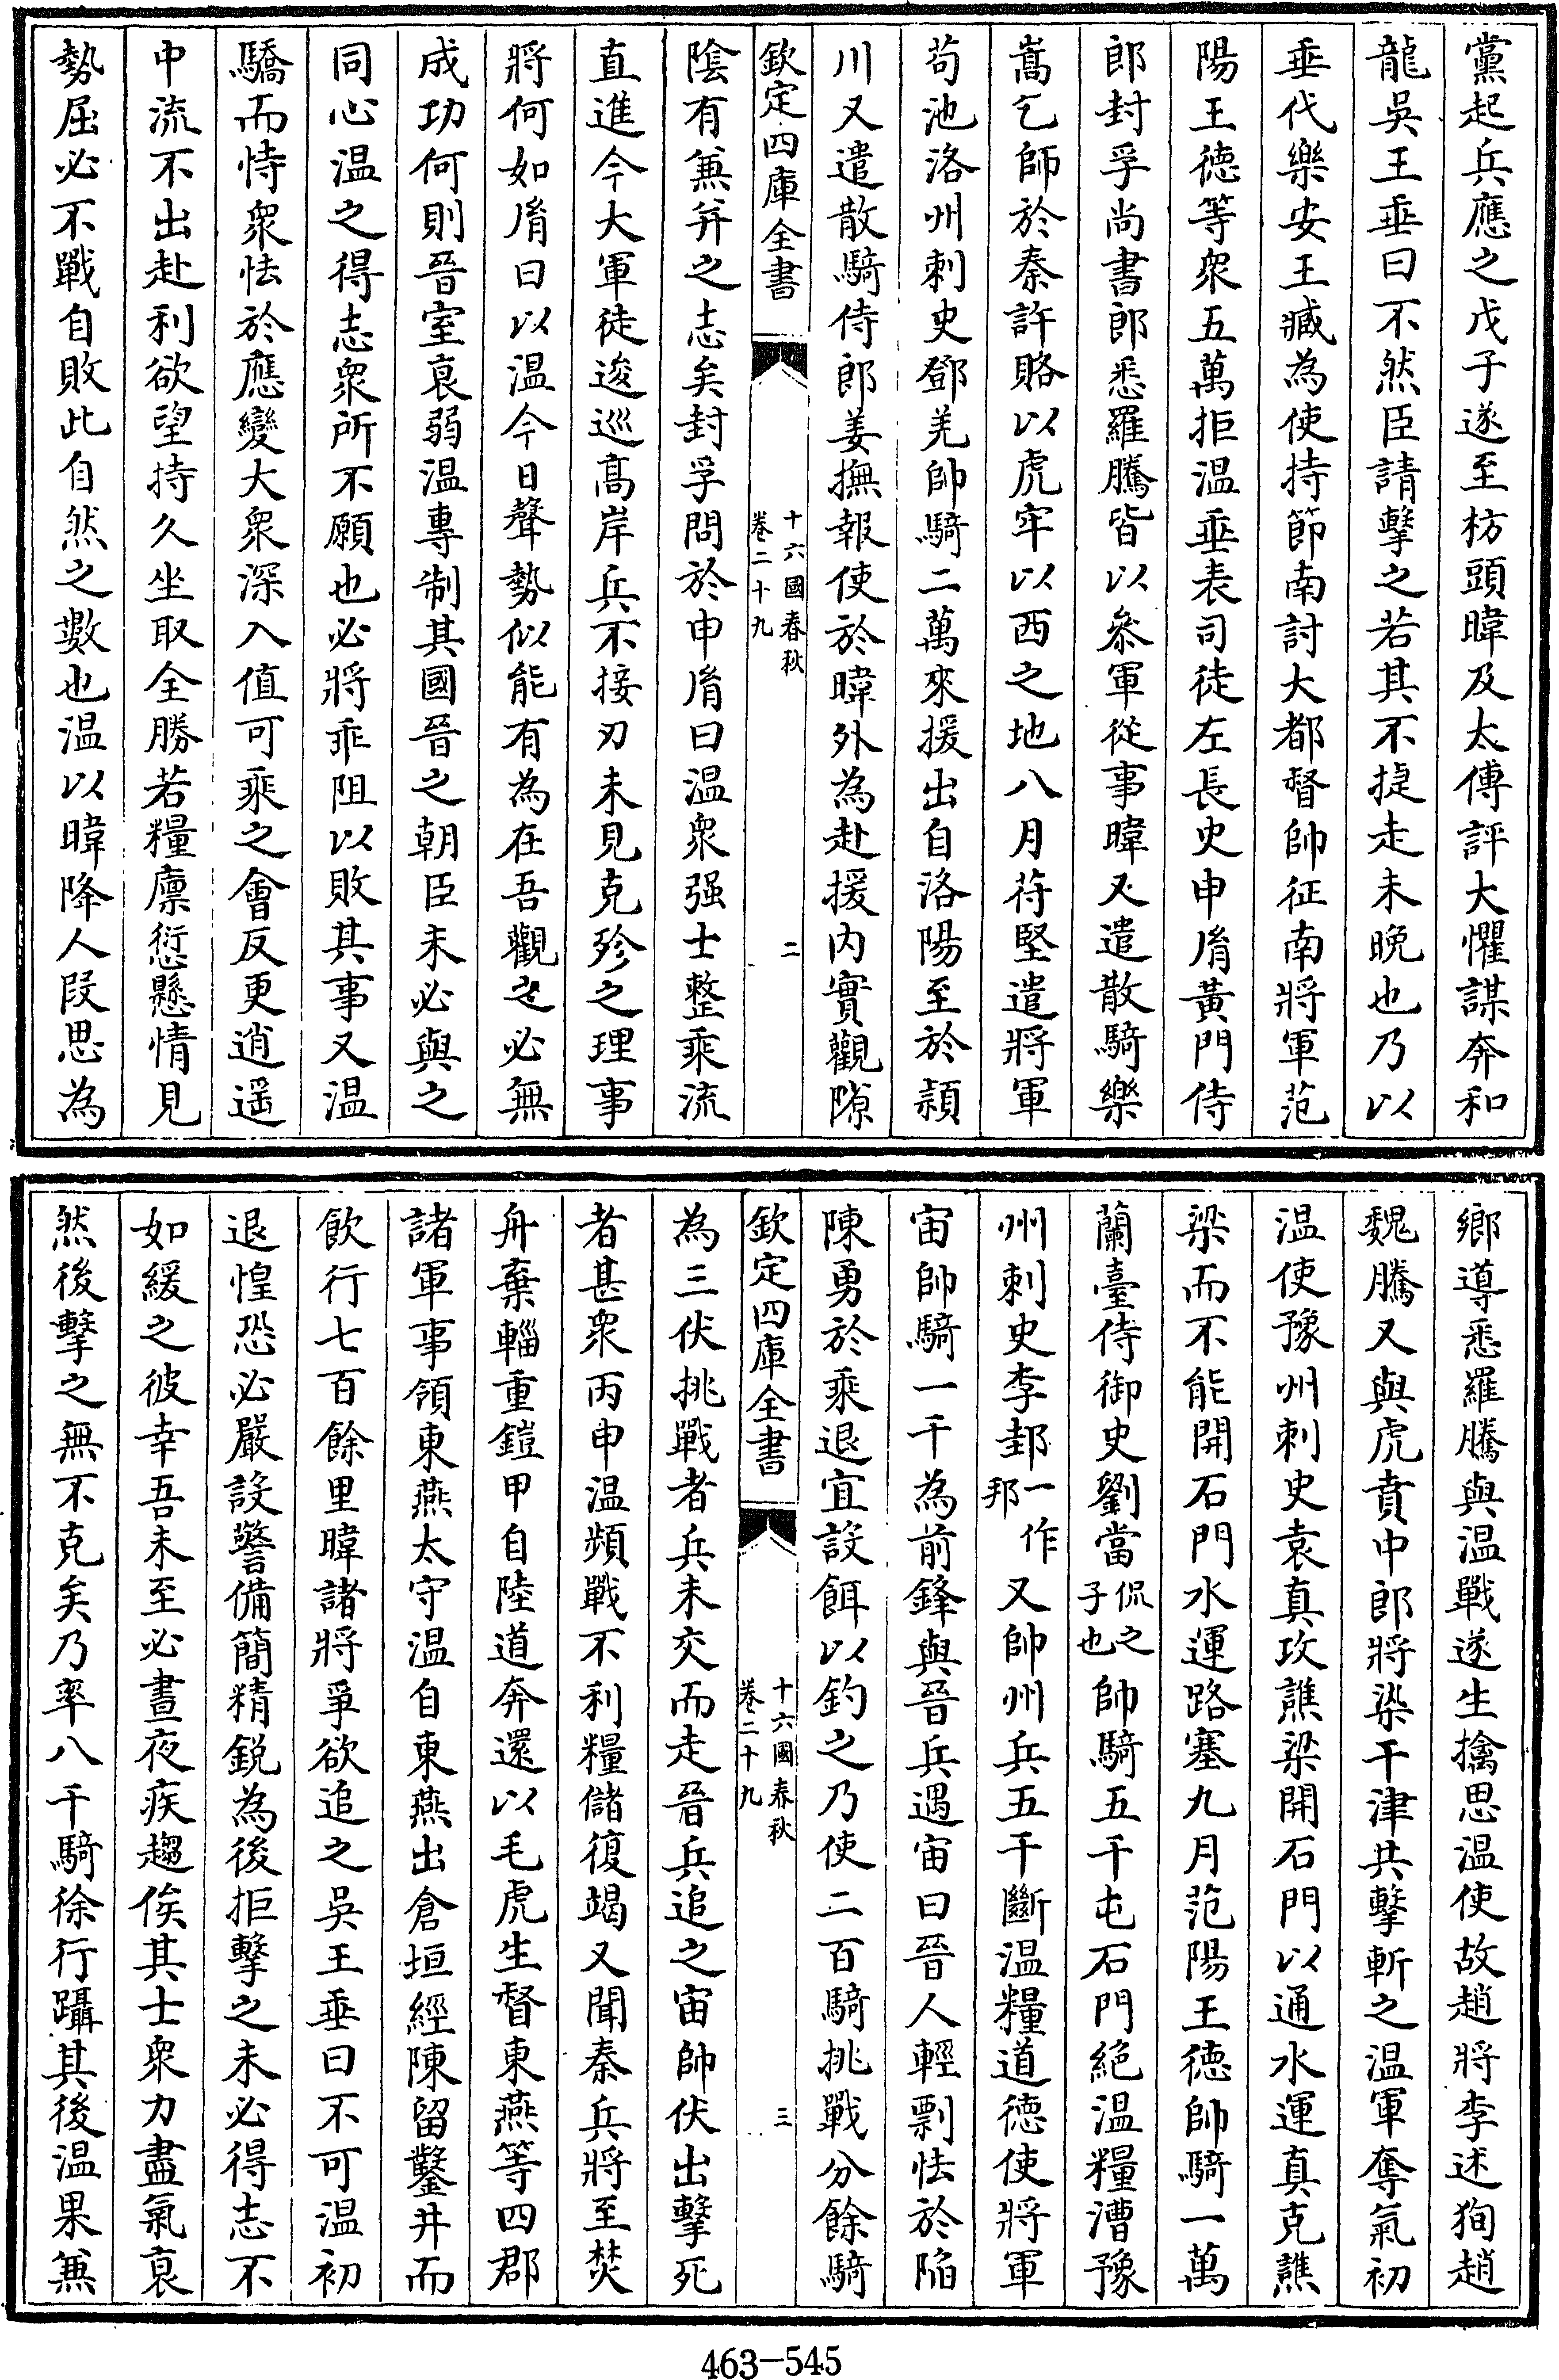 黨起兵應之戊子遂至枋頭暐及太傅評大懼謀奔和
龍吳王垂曰不然臣請擊之若其不捷走未晚也乃以
垂代樂安王臧為使持節南討大都督帥征南將軍范
陽王德等衆五萬拒温垂表司徒左長史申胤黃門侍
郎封孚尚書郎悉羅騰皆以叅軍從事暐又遣散騎樂
嵩乞師於秦許賂以虎牢以西之地八月苻堅遣將軍
苟池洛州刺史鄧羌帥騎二萬來援出自洛陽至於潁
川又遣散騎侍郎姜撫報使於暐外為赴援内實觀隙
欽定四庫全書
十六國春秋
卷二十九
二
隂有兼并之志矣封孚問於申胤曰温衆强士整乘流
直進今大軍徒逡巡髙岸兵不接刃未見克殄之理事
將何如胤曰以温今日聲勢似能有為在吾觀之必無
成功何則晉室衰弱温專制其國晉之朝臣未必與之
同心温之得志衆所不願也必將乖阻以敗其事又温
驕而恃衆怯於應變大衆深入值可乘之會反更逍遥
中流不出赴利欲望持久坐取全勝若糧廩愆懸情見
勢屈必不戰自敗此自然之數也温以暐降人段思為
鄉導悉羅騰與温戰遂生擒思温使故趙將李述狥趙
魏騰又與虎賁中郎將染干津共擊斬之温軍奪氣初
温使豫州刺史袁真攻譙梁開石門以通水運真克譙
梁而不能開石門水運路塞九月范陽王德帥騎一萬
蘭臺侍御史劉當侃之子也帥騎五千屯石門絶温糧漕豫
州刺史李邽一作邦又帥州兵五千斷温糧道德使將軍
宙帥騎一千為前鋒與晉兵遇宙曰晉人輕剽怯於陷
陳勇於乘退宜設餌以釣之乃使二百騎挑戰分餘騎
欽定四庫全書
十六國春秋
卷二十九
三
為三伏挑戰者兵未交而走晉兵追之宙帥伏出擊死
者甚衆丙申温頻戰不利糧儲復竭又聞秦兵將至焚
舟棄輜重鎧甲自陸道奔還以毛虎生督東燕等四郡
諸軍事領東燕太守温自東燕出倉垣經陳留鑿井而
飲行七百餘里暐諸將爭欲追之吳王垂曰不可温初
退惶恐必嚴設警備簡精鋭為後拒擊之未必得志不
如緩之彼幸吾未至必晝夜疾趨俟其士衆力盡氣衰
然後擊之無不克矣乃率八千騎徐行躡其後温果兼
463-545